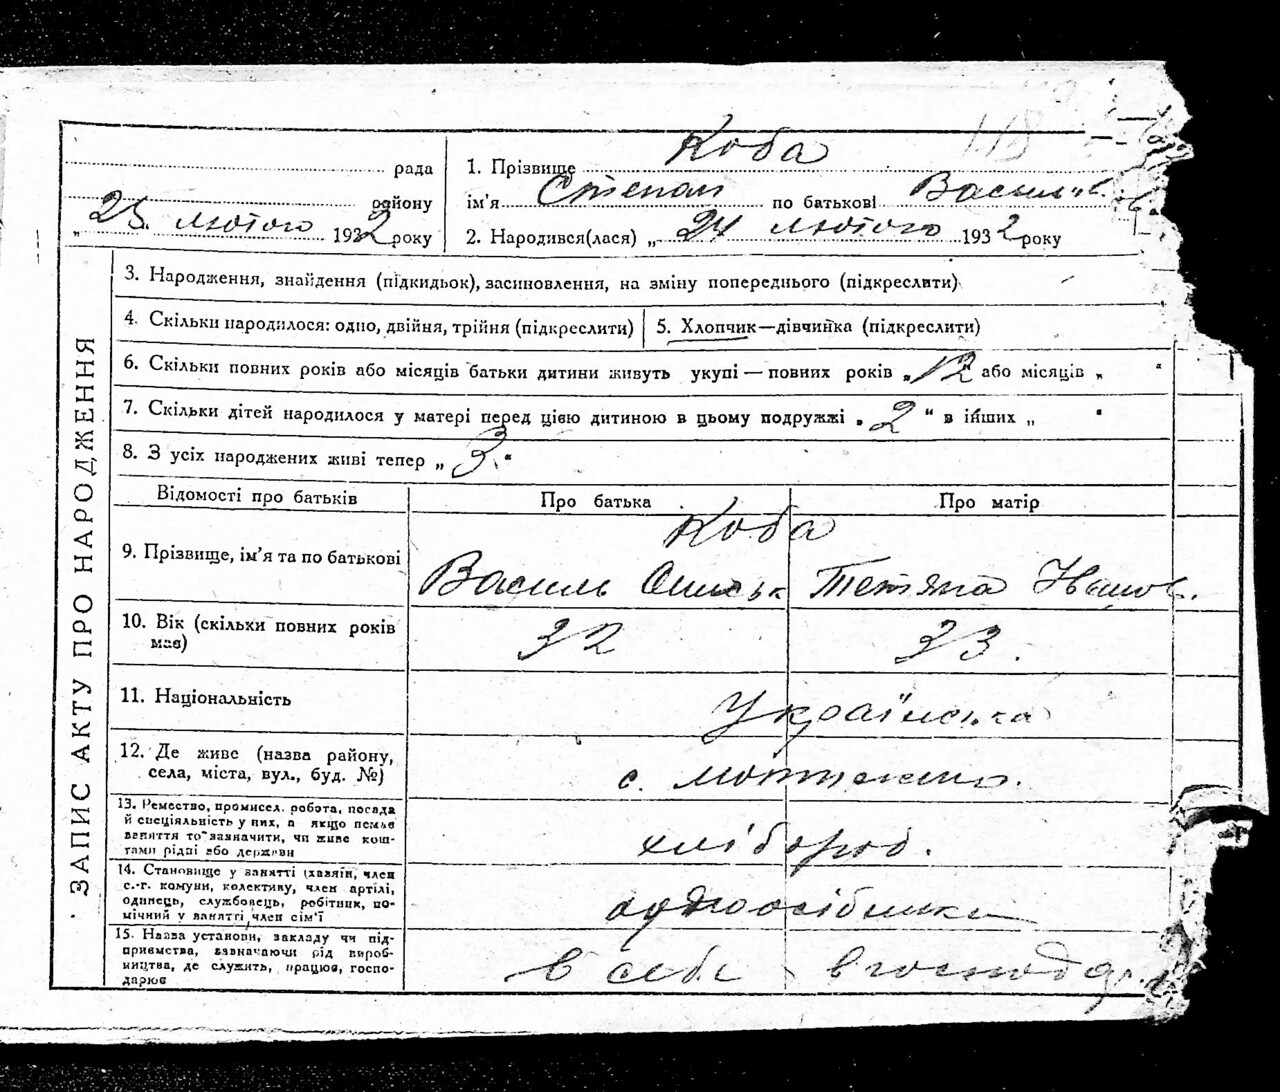 118
рада
району
„ 25 лютого 1932 року
1. Прізвище Коба
ім'я Степан по батькові Васильов.
2. Народився(лася) „ 24 лютого 1932 року
ЗАПИС АКТУ ПРО НАРОДЖЕННЯ
3. Народження, знайдення (підкидьок), засиновлення, на зміну попереднього (підкреслити)
4. Скільки народилося: одно, двійня, трійня (підкреслити)
5. Хлопчик—дівчинка (підкреслити)
6. Скільки повних років або місяців батьки дитини живуть укупі — повних років „12" або місяців „ "
7. Скільки дітей народилося у матері перед цією дитиною в цьому подружжі „2" в інших „ "
8. З усіх народжених живі тепер „3"
Відомості про батьків
Про батька
Про матір
9. Прізвище, ім'я та по батькові
Коба
Василь
Тетяна Іванов.
10. Вік (скільки повних років
має)
32
33.
11. Національність
Українська
12. Де живе (назва району,
села, міста, вул., буд. №)
с.
13. Ремество, промисел, робота, посада
й спеціяльність у них, а якщо немає
заняття то зазначити, чи живе кош-
тами рідні або держави
хлібороб.
14. Становище у занятті (хазяїн, член
с.-г. комуни, колективу, член артілі,
одинець, службовець, робітник, по-
мічний у занятті член сім'ї
одноосібники
15. Назва установи, закладу чи під-
приємства, зазначаючи рід вироб-
ництва, де служить, працює, госпо-
дарює
в себе в господар.